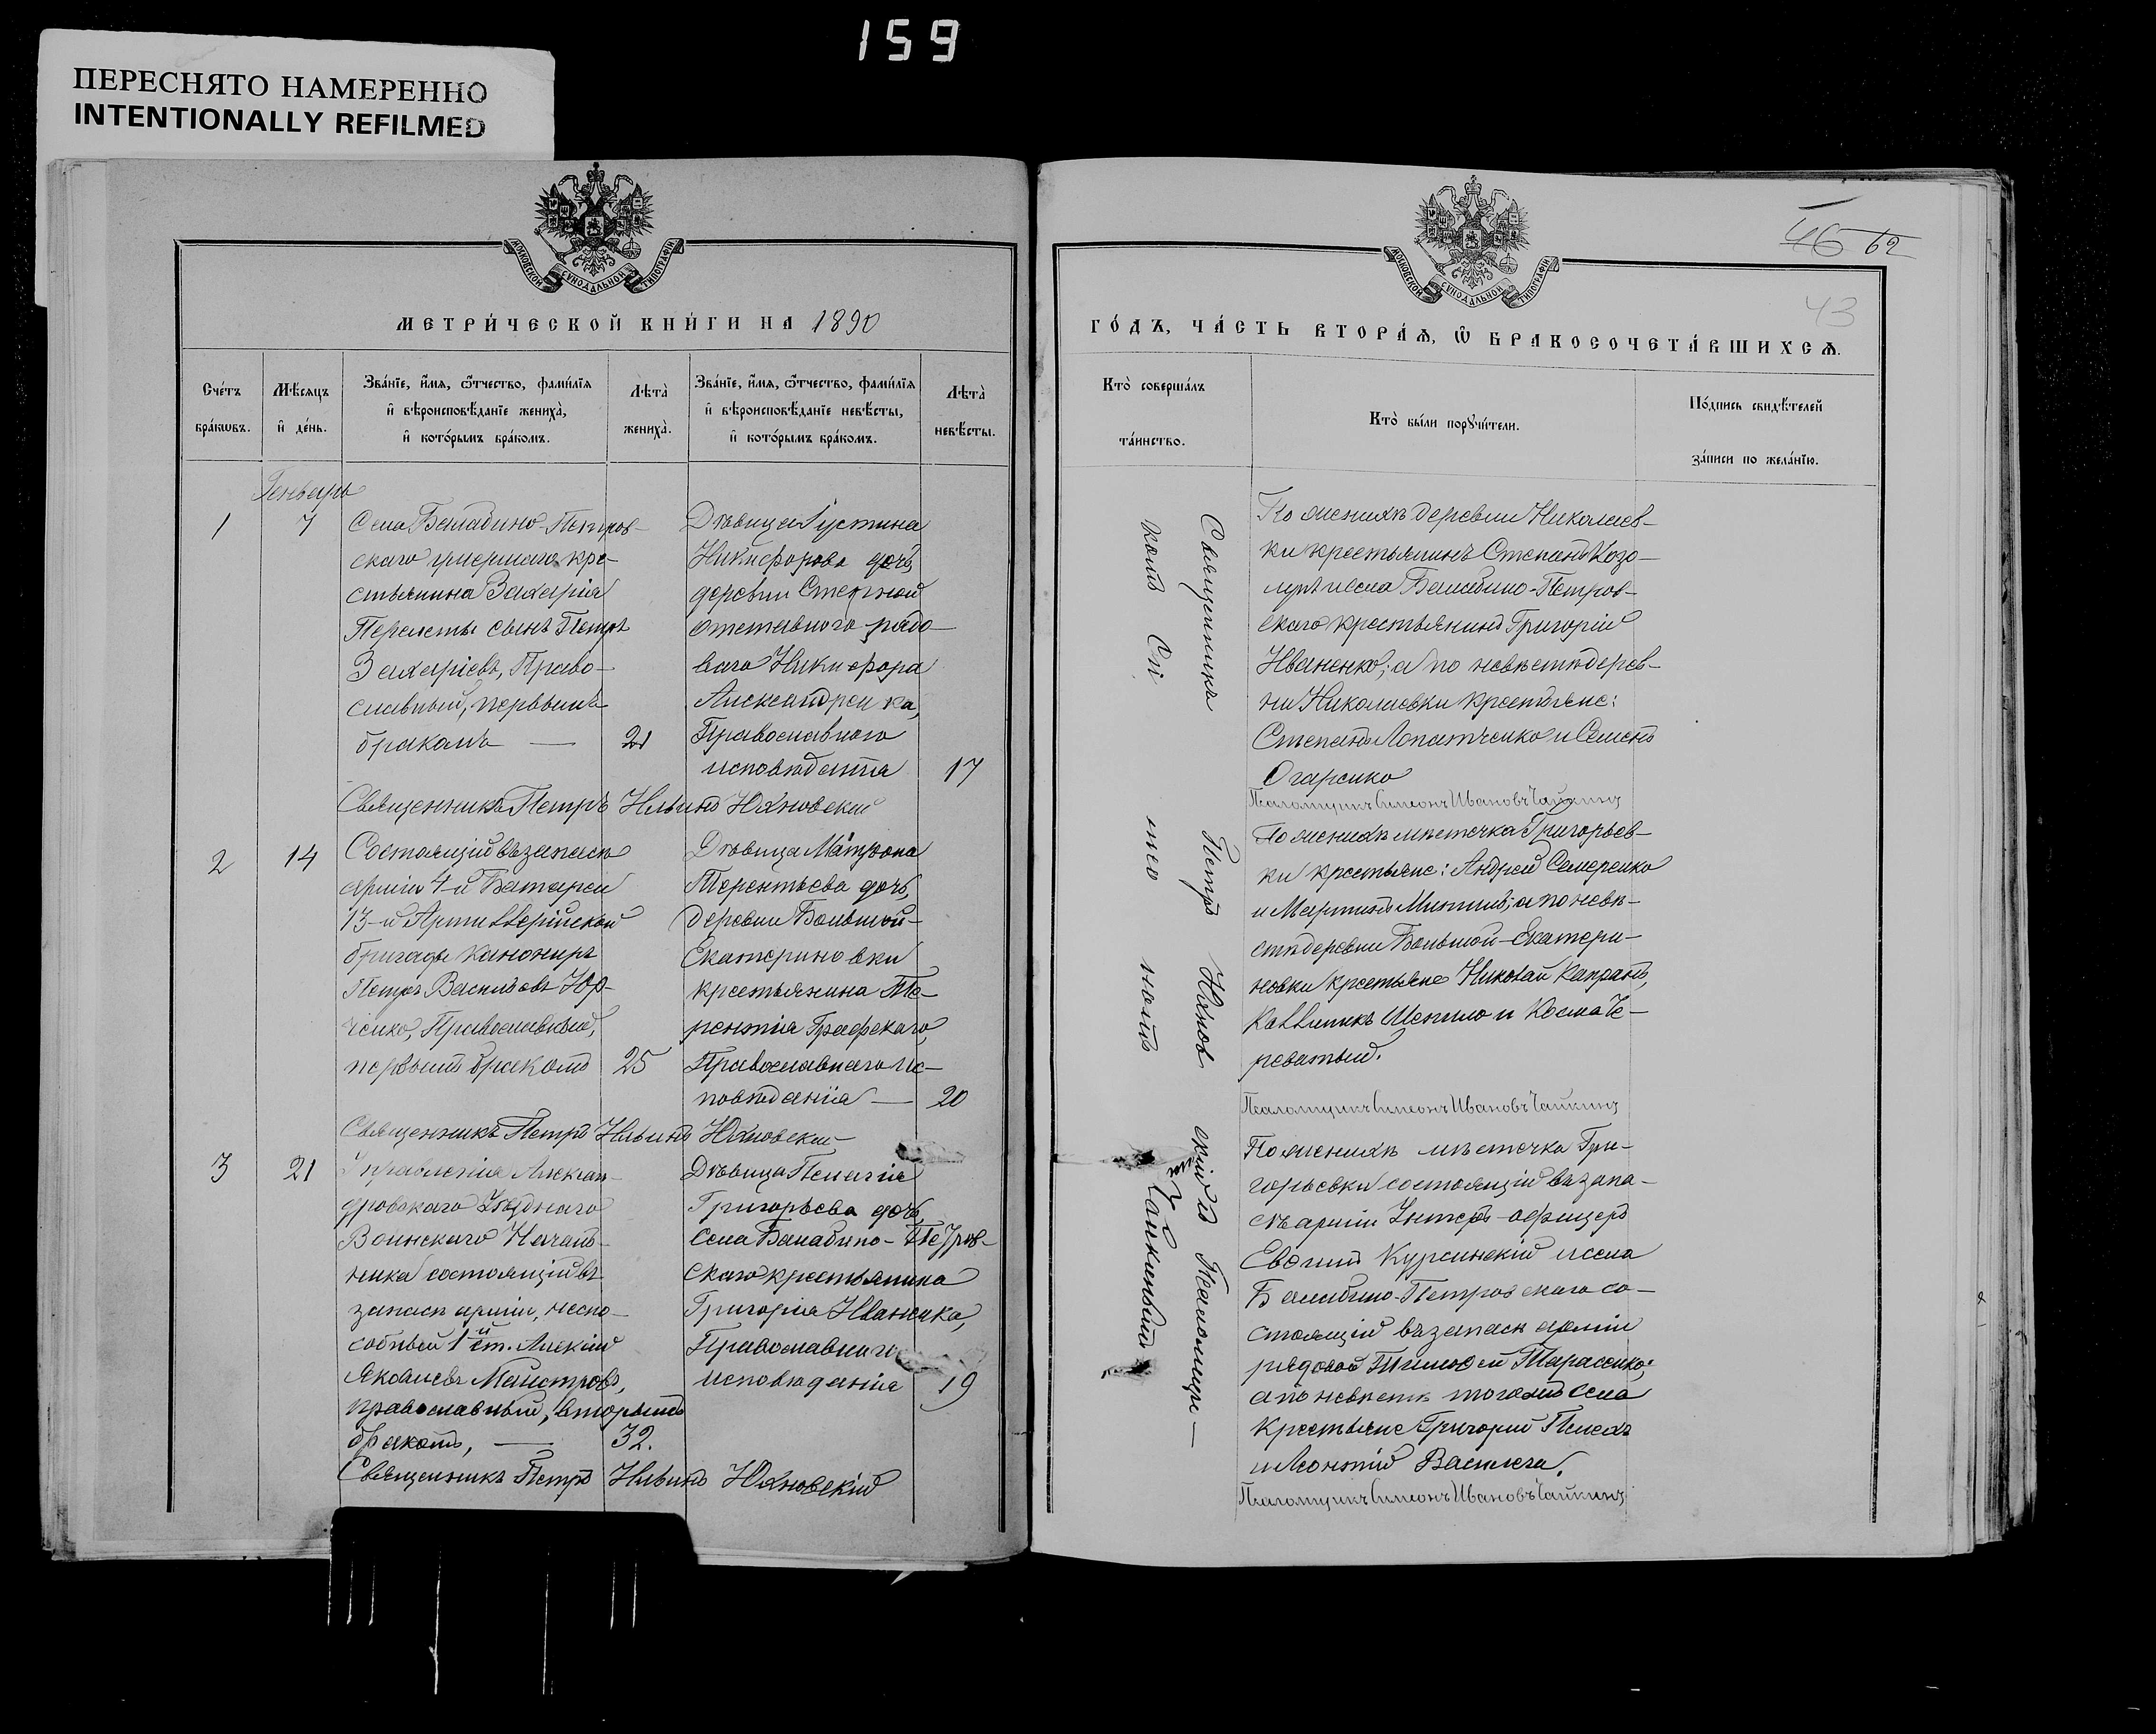 159
ПЕРЕСНЯТО НАМЕРЕННО
INTENTIONALLY REFILMED
МОСКОВСКОЙ СѴНОДАЛЬНОЙ ТИПОГРАФІИ
МЕТРИ́ЧЕСКОЙ КНИ́ГИ НА 1890
Сче́тъ
бра́кѡвъ.
Мѣ́сяцъ
и҆ де́нь.
Зва́нїе, и҆́мѧ, ѻ҆́тчество, фами́лїѧ
и҆ вѣроисповѣ́данїе жениха̀,
и҆ кото́рымъ бра́комъ.
Лѣта̀
жениха̀.
Зва́нїе, и҆́мѧ, ѻ҆́тчество, фами́лїѧ
и҆ вѣроисповѣ́данїе невѣ́сты,
и҆ кото́рымъ бра́комъ.
Лѣта̀
невѣ́сты.
Генварь
1
7
Села Балабино-Петров-
скаго умершаго кре-
стьянина Захарія
Перелеты сынъ Петръ
Захаріевъ, Право-
славный, первымъ
бракомъ —
21
Дѣвица Іустина
Никифорова дочь,
деревни Степной
отставного рядо-
ваго Никифора
Александренка,
Православнаго
исповѣданія
17
Священникъ Петръ Ильинъ Юхновскій
2
14
Состоящій въ запасѣ
арміи 4-й Батареи
13-й Артиллерійской
бригады канониръ
Петръ Васильевъ Юр-
ченко, Православный,
первымъ бракомъ
25
Дѣвица Матрона
Терентьева дочь,
деревни Большой-
Екатериновки
крестьянина Те-
рентія Графскаго,
Православнаго ис-
повѣданія —
20
Священникъ Петръ Ильинъ Юхновскій
3
21
Управленія Алексан-
дровскаго Уѣзднаго
Воинскаго Началь-
ника состоящій въ
запасѣ арміи, неспо-
собный 1й ст. Алексій
Яковлевъ Майстровъ,
православный, вторымъ
бракомъ, —
32.
Дѣвица Пелагія
Григорьева дочь,
Села Балабино-Петров-
скаго крестьянина
Григорія Иваненка,
Православнаго
исповѣданія
19
Священникъ Петръ Ильинъ Юхновскій
46 62
43
МОСКОВСКОЙ СѴНОДАЛЬНОЙ ТИПОГРАФІИ
ГО́ДЪ, ЧА́СТЬ ВТОРА́Ѧ, Ѡ҆ БРАКОСОЧЕТА́ВШИХСѦ.
Кто̀ соверша́лъ
та́инство.
Кто̀ бы́ли порꙋчи́тели.
По́дпись свидѣ́телей
за́писи по жела́нїю.
Священникъ Петръ Юхновскій съ Псаломщи-
комъ Симеономъ Чайкинымъ
По женихѣ деревни Николаев-
ки крестьянинъ Степанъ Козо-
и села Балабино-Петров-
скаго крестьянинъ Григорій
Иваненко; а по невѣстѣ дерев-
ни Николаевки крестьяне:
Степанъ Лопатченко и Семенъ
Огаренко
Псаломщикъ Симеонъ Ивановъ Чайкинъ
По женихѣ мѣстечка Григорьев-
ки крестьяне: Андрей Семеренко
и Мартинъ а по невѣ-
стѣ деревни Большой-Екатери-
новки крестьяне Николай Капранъ,
Каллиникъ Шепило и Косма Че-
реватый.
Псаломщикъ Симеонъ Ивановъ Чайкинъ
По женихѣ мѣстечка Гри-
горьевки состоящій въ запа-
сѣ арміи Унтеръ-офицеръ
Курсинскій и села
Балабино-Петровскаго со-
стоящій въ запасѣ арміи
рядовой Тимофей Тарасенко;
а по невѣстѣ того же села
крестьяне Григорій Пелехъ
и Леонтій Василега.
Псаломщикъ Симеонъ Ивановъ Чайкинъ